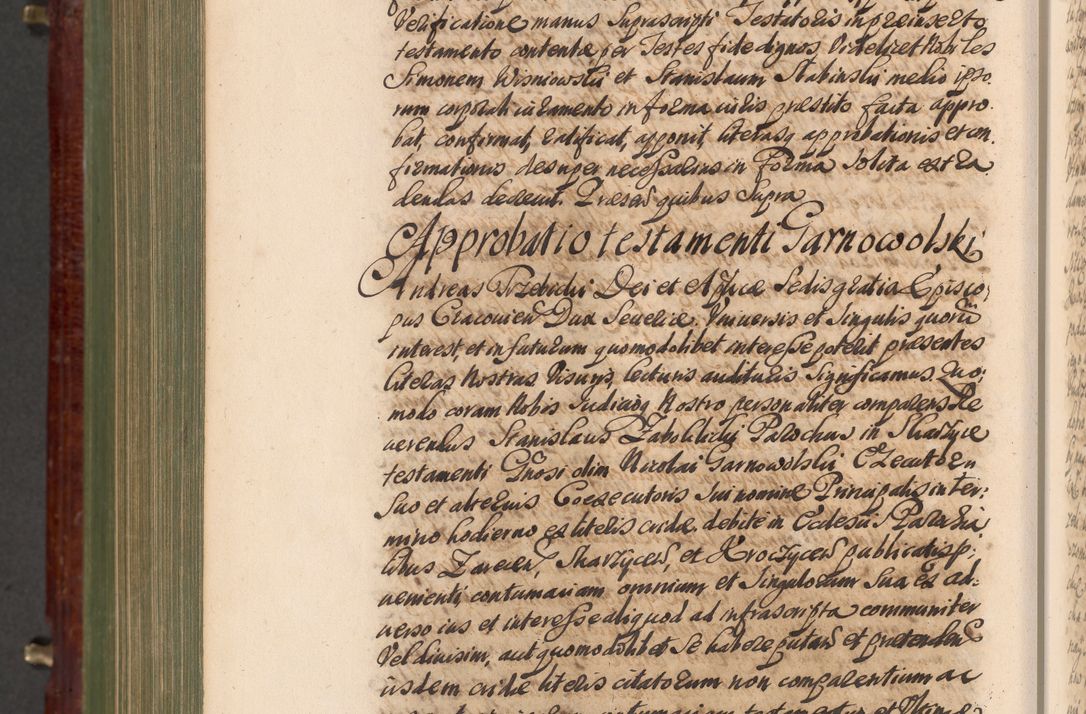 Verificatione manus Suprascripti Testatoris in præinserto
testamento contentæ per Testes fide dignos Videlicet Nobiles
Simonem Wisniowski et Stanislaum Stabinski medio ipso
rum corporali iuramento in forma iuris præstito facta appro
bat, confirmat, ratificat, apponit, literasq approbationis et con
firmationis desuper necessarias in Forma Solita extra
dendas decrevit. Præsen quibus Supra
Approbatio testamenti Garnowolski
Andreas Trzebicki Dei et Aplicæ Sedis gratia Episco
pus Cracovien Dux Severiæ. Universis et Singulis quorū
interest, et in futurum quomodolibet interesse poterit præsentes
literas Nostras Visuris, lecturis audituris Significamus. Quo
modo coram Nobis Iudicioq Nostro personaliter comparens Re
verendus Stanislaus Zabolicki Parochus in Skarzyce
testamenti Gnosi olim Nicolai Garnowolski Executor
Suo et alterius Coexecutoris Sui nomine Principalis in ter
mino hodierno ex literis cridæ debite in Ecclesiis Parochia
libus Zarcen, Skarzycen, et Kroczycen publicatis p
venienti, contumaciam omnium et Singulorum Sua eē ad
verso ius et interesse aliquod ad infrascripta communiter
Vel divisim, aut quomodolibet Se habere putan et prætenden
iisdem cridæ literis citatorum non comparentium ac